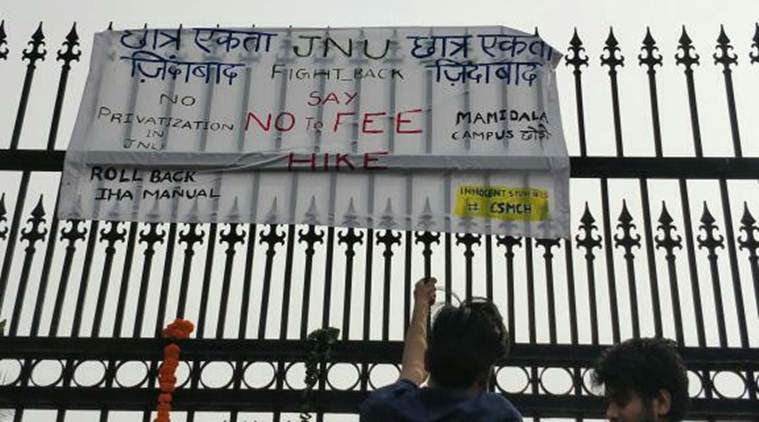 छात्र एकता JNU छात्र एकता
ज़िंदाबाद FIGHT BACK ज़िंदाबाद
NO
PRIVATIZATION
IN
JNU
SAY
NO TO FEE
HIKE
MAMIDALA
CAMPUS छोड़ो
ROLL BACK
IHA MANUAL
INNOCENT STUDENTS
# CSMCH